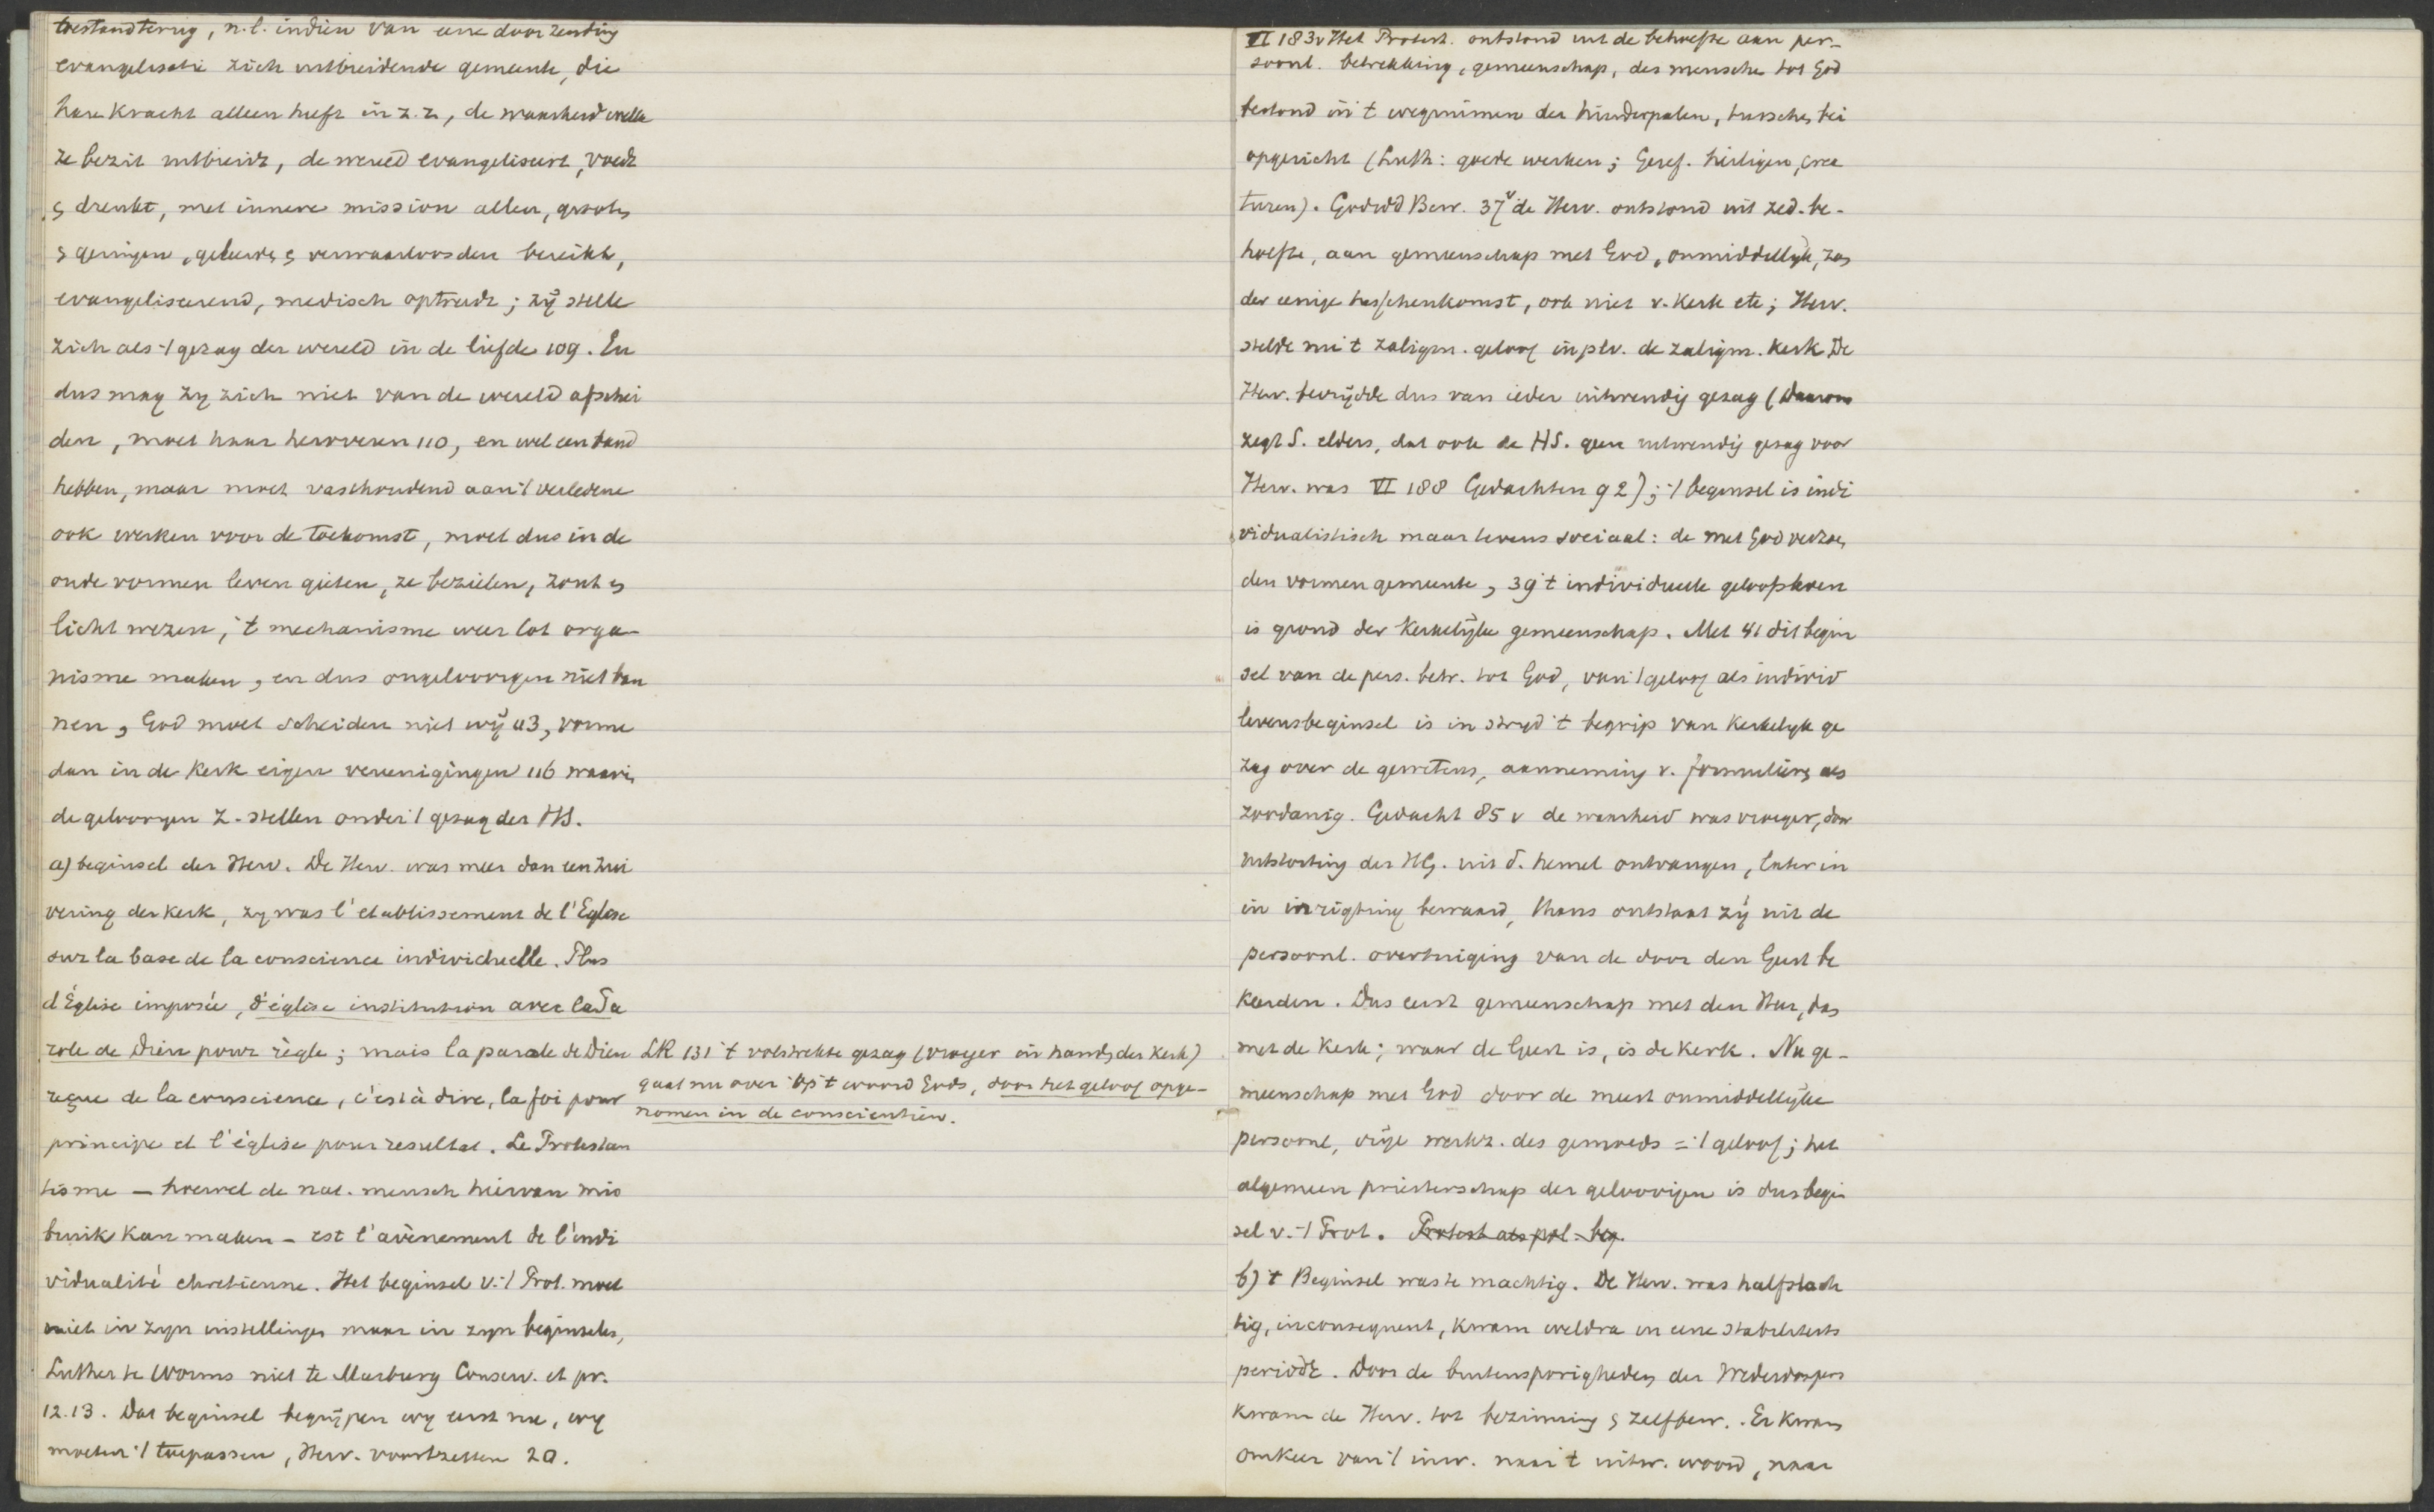 toestand terug, n.l. indien van eene door zending
evangelisatie zich uitbreidende gemeente, die
hare kracht alleen heeft in z.z, de waarheid welke
ze bezit uitbreidt, de wereld evangeliseert, voedt
& drenkt, met innere mission allen, grooten
& geringen, geleerde & verwaarloosden bereikt,
evangeliseerend, medisch optreedt; zij stelle
zich als 't gezag der wereld in de liefde 109. En
dus mag zy zich niet van de wereld afschei
den, moet haar hervormen 110, en wel een band
hebben, maar moet vasthoudend aan 't verledene
ook werken voor de toekomst, moet dus in de
oude vormen leven gieten, ze bezielen, zout &
licht wezen, 't mechanisme weer tot orga-
nisme maken, en dus ongeloovigen niet ban
nen, God moet scheiden niet wij 113, vorme
dan in de kerk eigen vereenigingen 116 waarin
de geloovigen z. stellen onder 't gezag der HS.
a) beginsel der Herv. De Herv. was meer dan een zui
vering der kerk, zy was l'etablissement de l'Eglise
sur la base de la conscience individuelle. Plus
d'Église imposée, d'église institution avec la Pa
role de Dieu pour règle; mais la parole de Dieu
reçue de la conscience, c'est à dire, la foi pour
principe et l'église pour resultat. Le Protestan
tisme — hoewel de nat. mensch hiervan mis
bruik kan maken — est l'avènement de l'indi
vidualité chretienne. Het beginsel v. 't Prot. moet
niet in zyn instellingen maar in zyn beginselen,
Luther te Worms niet te Marburg Conserv. et pr.
12.13. Dat beginsel begrijpen wy eerst nu, wy
moeten 't toepassen, Herv. voortzetten 20.
LR 131 't volstrekte gezag (vroeger in handen der kerk)
gaat nu over op 't woord Gods, door het geloof opge-
nomen in de conscientien.
VI 183v Het Protest. ontstond uit de behoefte aan per-
soonl. betrekking, gemeenschap, des menschen tot God
bestond in 't wegnemen der hinderpalen, tusschen bei
opgericht (Luth: goede werken; Geref. heiligen, crea
turen). Godsd Bew. 37v de Herv. ontstond uit zed. be-
hoefte, aan gemeenschap met God, onmiddellyk, zon
der eenige tusschenkomst, ook niet v. kerk etc; Herv.
stelde nu 't zaligm. geloof in plv. de zaligm. kerk De
Herv. bevrijdde dus van ieder uitwendig gezag (Daarom
zegt S. elders, dat ook de HS. geen uitwendig gezag voor
Herv. was VI 188 Gedachten 92); 't beginsel is indi
vidualistisch maar tevens sociaal: de met God verzoen
den vormen gemeente, 39 't individueele geloofsleven
is grond der kerkelijke gemeenschap. Met 41 dit begin
sel van de pers. betr. tot God, van 't geloof als individ
levensbeginsel is in stryd 't begrip van kerkelyk ge
zag over de gewetens, aanneming v. formulieren als
zoodanig. Gedacht 85 v de waarheid was vroeger, door
uitstorting des HG. uit d. hemel ontvangen, later in
in inrigting bewaard, thans ontstaat zij uit de
persoonl. overtuiging van de door den Geest be
keerden. Dus eerst gemeenschap met den Heer, dan
met de Kerk; waar de Geest is, is de kerk. Nu ge-
meenschap met God door de meest onmiddellijke
persoonl, vrije werkz. des gemoeds = 't geloof; het
algemeen priesterschap der geloovigen is dus begin
sel v. 't Prot. Protest als pol. beg.
b) 't Beginsel was te machtig. De Herv. was halfslach
tig, inconsequent, kwam weldra in eene stabiliteits
periode. Door de buitensporigheden der Wederdoopers
kwam de Herv. tot bezinning & zelfbew. Er kwam
omkeer van 't inw. naar 't uitw. woord, naar